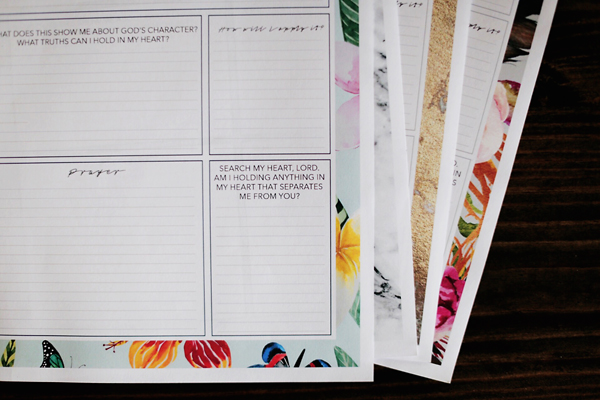 AT DOES THIS SHOW ME ABOUT GOD'S CHARACTER?
WHAT TRUTHS CAN I HOLD IN MY HEART?
How will I apply it?
Prayer
SEARCH MY HEART, LORD.
AM I HOLDING ANYTHING IN
MY HEART THAT SEPARATES
ME FROM YOU?